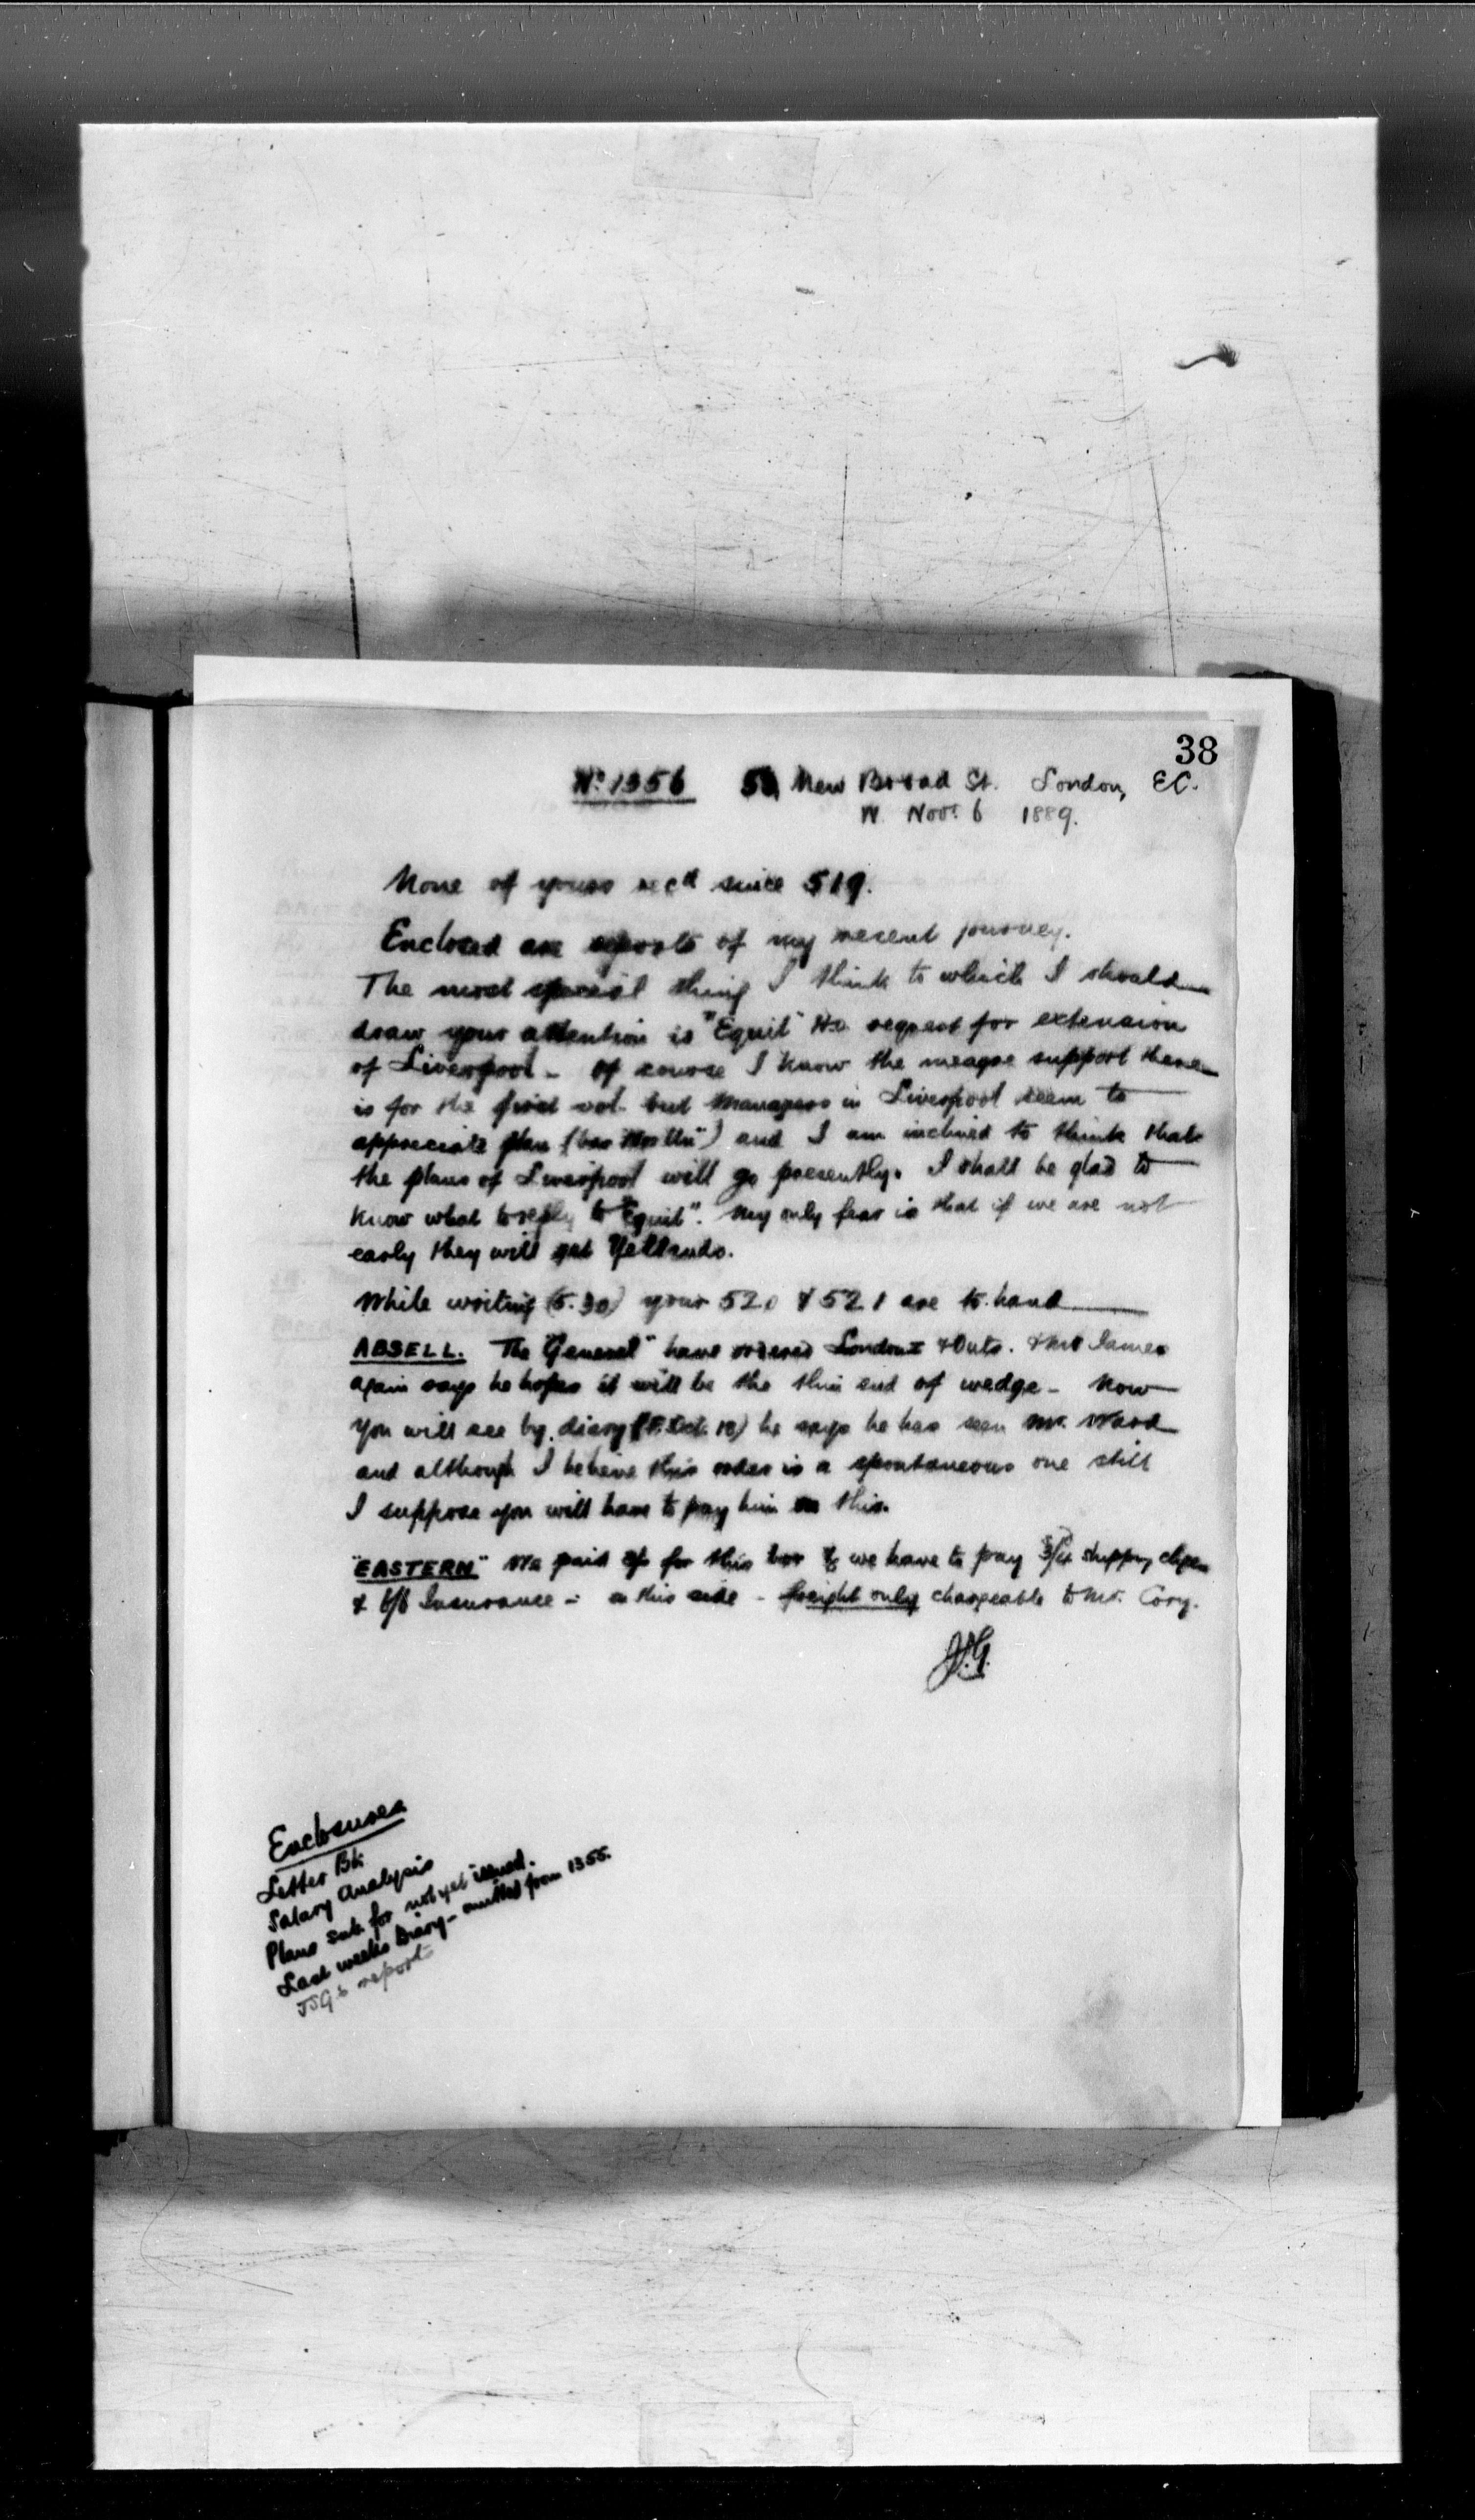 38
No. 1356 59, New Broad St. London, EC.
W. Novr 6 1889.
None of yours recd since 519.
Enclosed are reports of my recent journey.
The most special thing I think to which I should
draw your attention is "Equit" H.O. request for extension
of Liverpool - Of course I know the meagre support there
is for the first vol. but Managers in Liverpool seem to
appreciate plan and I am inclined to think that
the plans of Liverpool will go presently. I shall be glad to
know what to reply to "Equit". My only fear is that if we are not
early they will get Yelland.
While writing (5.30) your 520 & 521 are to hand
ABSELL. The "General" have ordered London I & Mr James
again says he hopes it will be the thin end of wedge - Now
you will see by diary (Oct. 18) he says he has seen Mr. Ward
and although I believe this order is a spontaneous one still
I suppose you will have to pay him on this.
"EASTERN" We paid for this box & we have to pay 3/4 shipping chges
& Insurance - on this side - freight only chargeable to Mr. Cory.
J.G.
Enclosures
Letter Bk
Salary Analysis
Plans sub for not yet issued.
Last weeks Diary - omitted from 1355.
JSG's reports